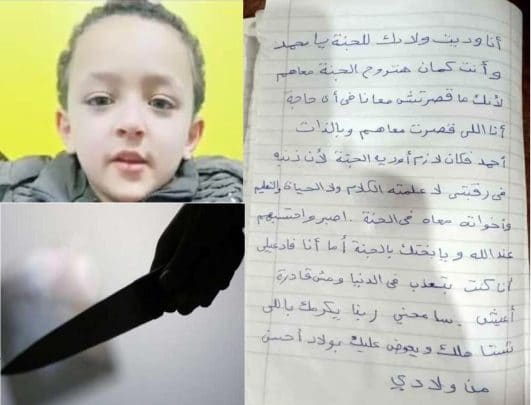 أنا وديت ولادك للجنة يا محمد
وأنت كمان هتروح الجنة معاهم
لأنك ما قصرتش معانا فى أى حاجة
أنا اللى قصرت معاهم وبالذات
أحمد فكان لازم أوديه الجنة لأن ذنبه
فى رقبتى لا علمته الكلام ولا الحياة والتعليم
وأخواته معاه فى الجنة . اصبر واحتسبهم
عند الله و يابختك بالجنة أما أنا فادعيلى
أنا كنت بتعذب فى الدنيا ومش قادرة
أعيش . سامحني ربنا يكرمك باللى
تستاهلك ويعوض عليك بولاد أحسن
من ولادي